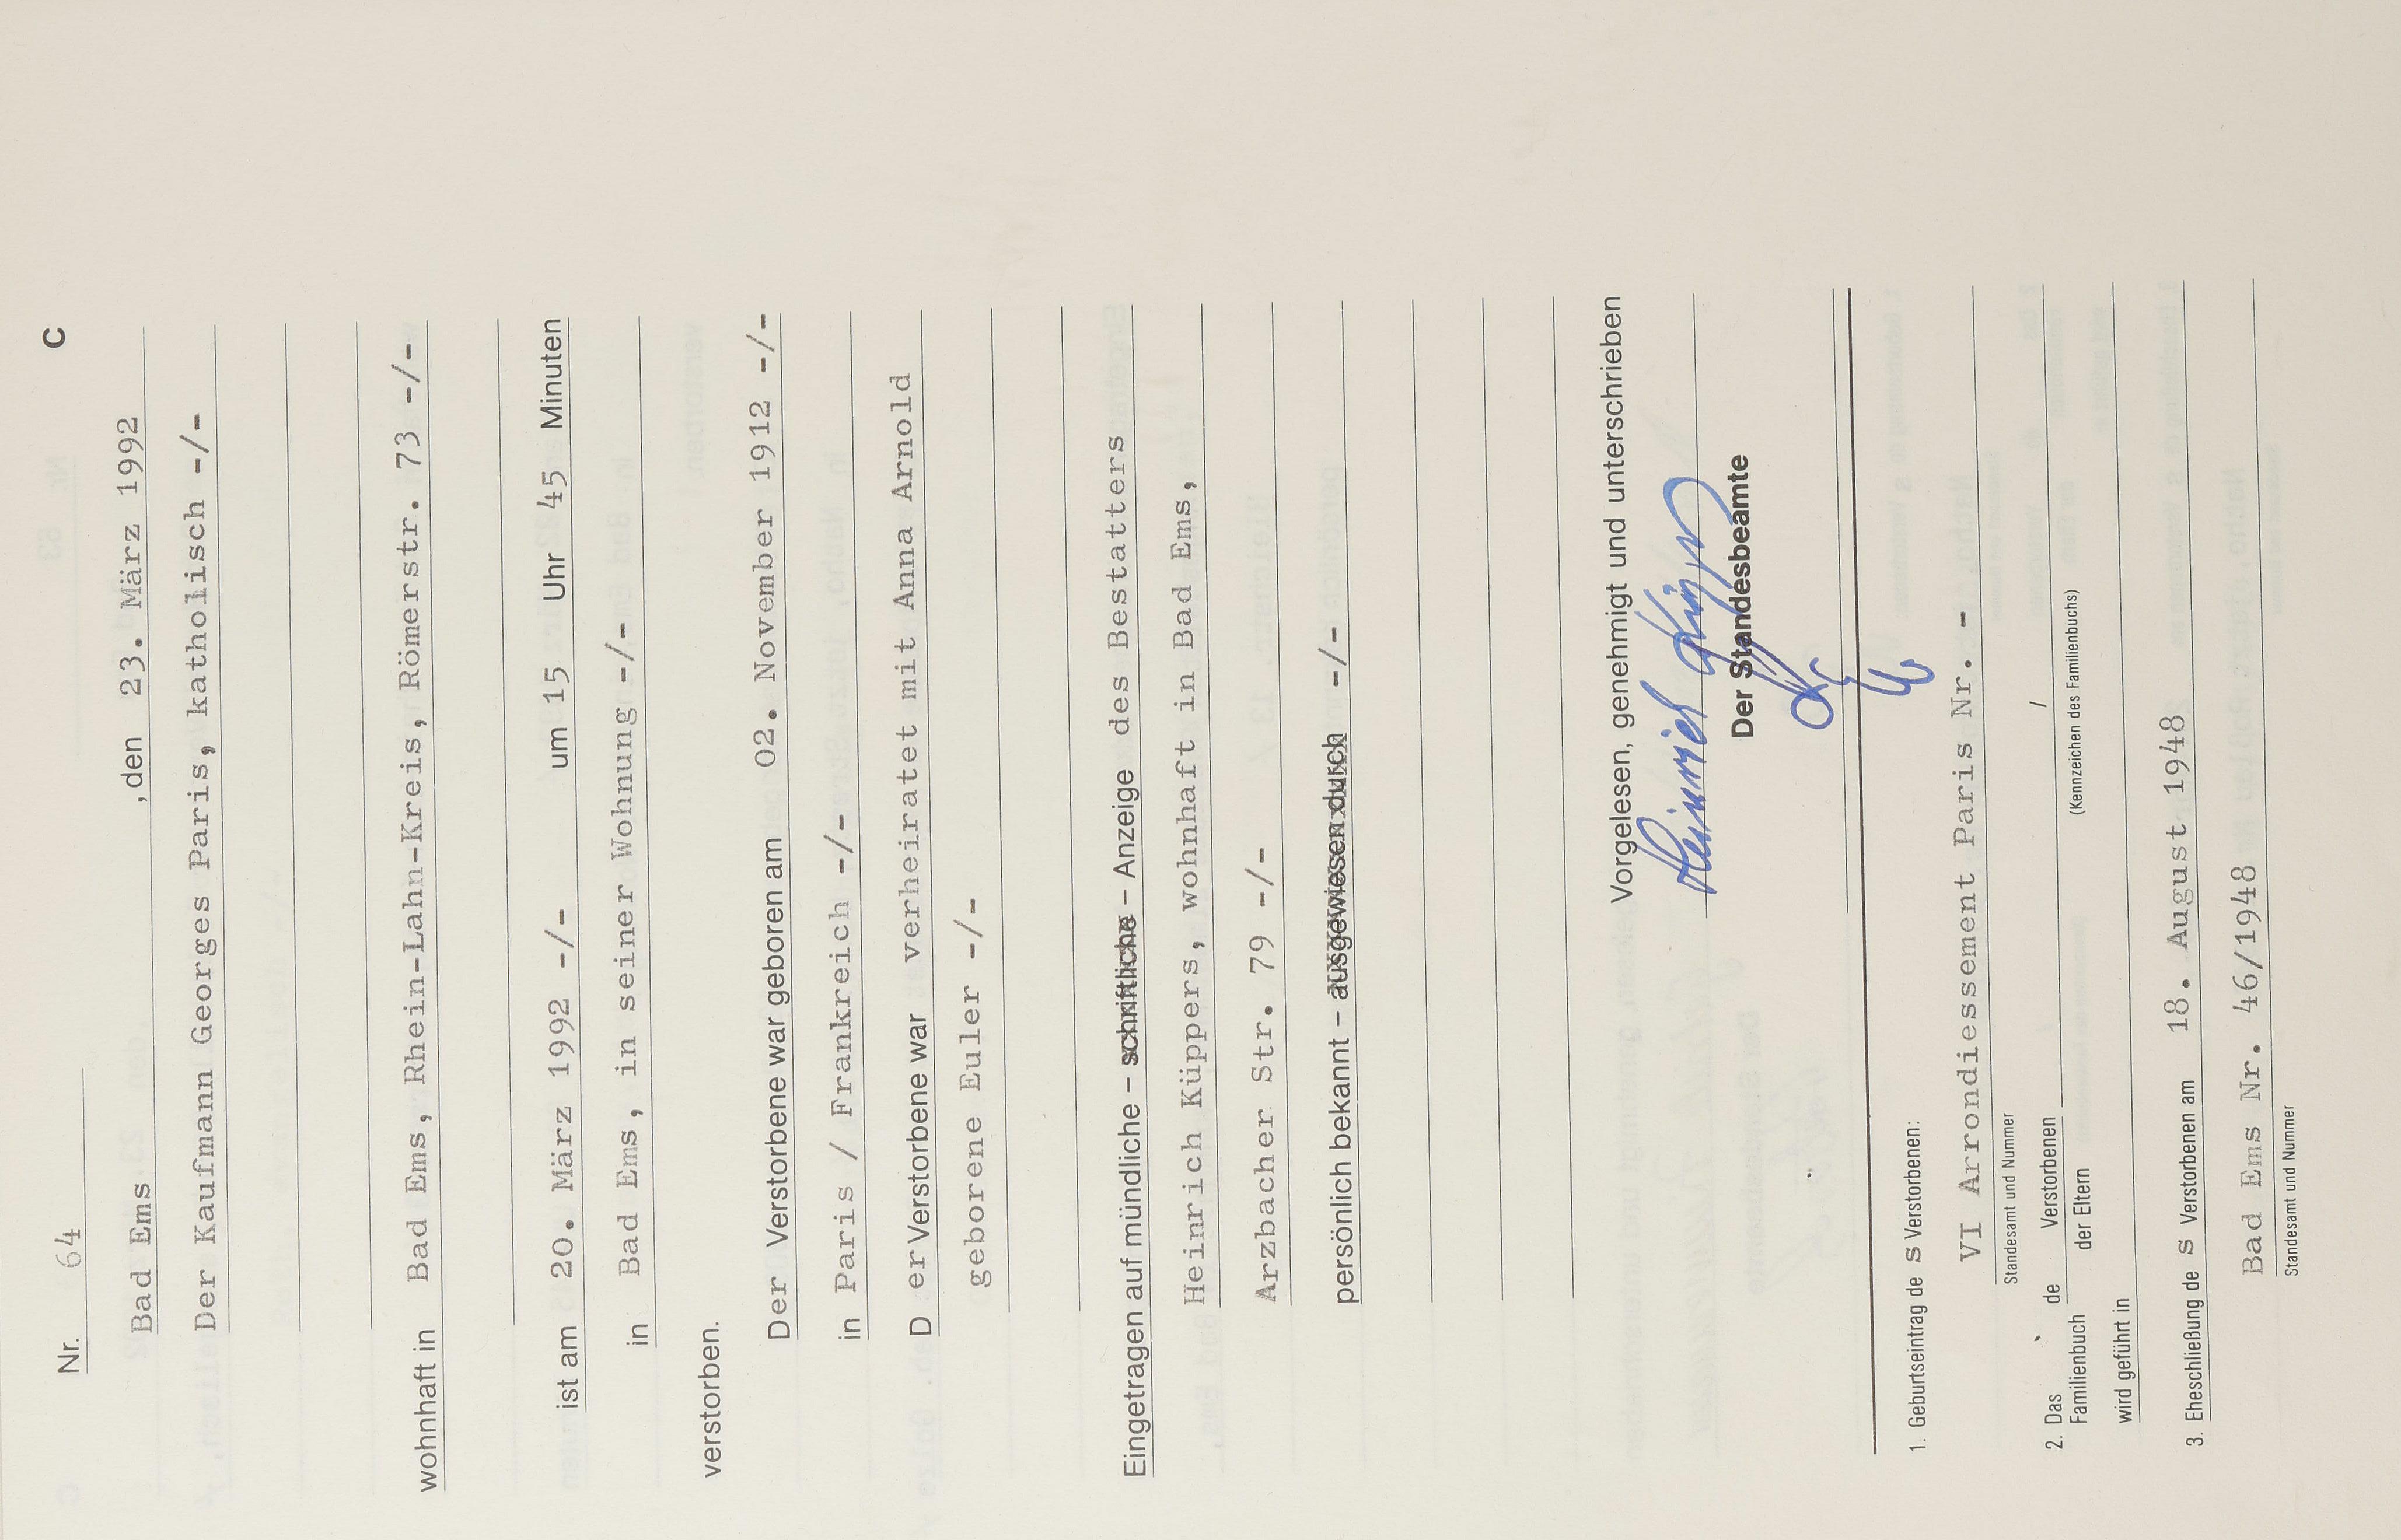 C
Nr. 64
Bad Ems , den 23. März 1992
Der Kaufmann Georges Paris, katholisch -/-
wohnhaft in Bad Ems, Rhein-Lahn-Kreis, Römerstr. 73 -/-
ist am 20. März 1992 -/- um 15 Uhr 45 Minuten
in Bad Ems, in seiner Wohnung -/-
verstorben.
Der Verstorbene war geboren am 02. November 1912 -/-
in Paris / Frankreich -/-
D er Verstorbene war verheiratet mit Anna Arnold
geborene Euler -/-
Eingetragen auf mündliche – schriftliche – Anzeige des Bestatters
Heinrich Küppers, wohnhaft in Bad Ems,
Arzbacher Str. 79 -/-
persönlich bekannt – ausgewiesen durch -/-
Vorgelesen, genehmigt und unterschrieben
Heinrich
Der Standesbeamte
1. Geburtseintrag de s Verstorbenen:
VI Arrondiessement Paris Nr. -
Standesamt und Nummer
2. Das Familienbuch de Verstorbenen / der Eltern
(Kennzeichen des Familienbuchs)
wird geführt in
3. Eheschließung de s Verstorbenen am 18. August 1948
Bad Ems Nr. 46/1948
Standesamt und Nummer